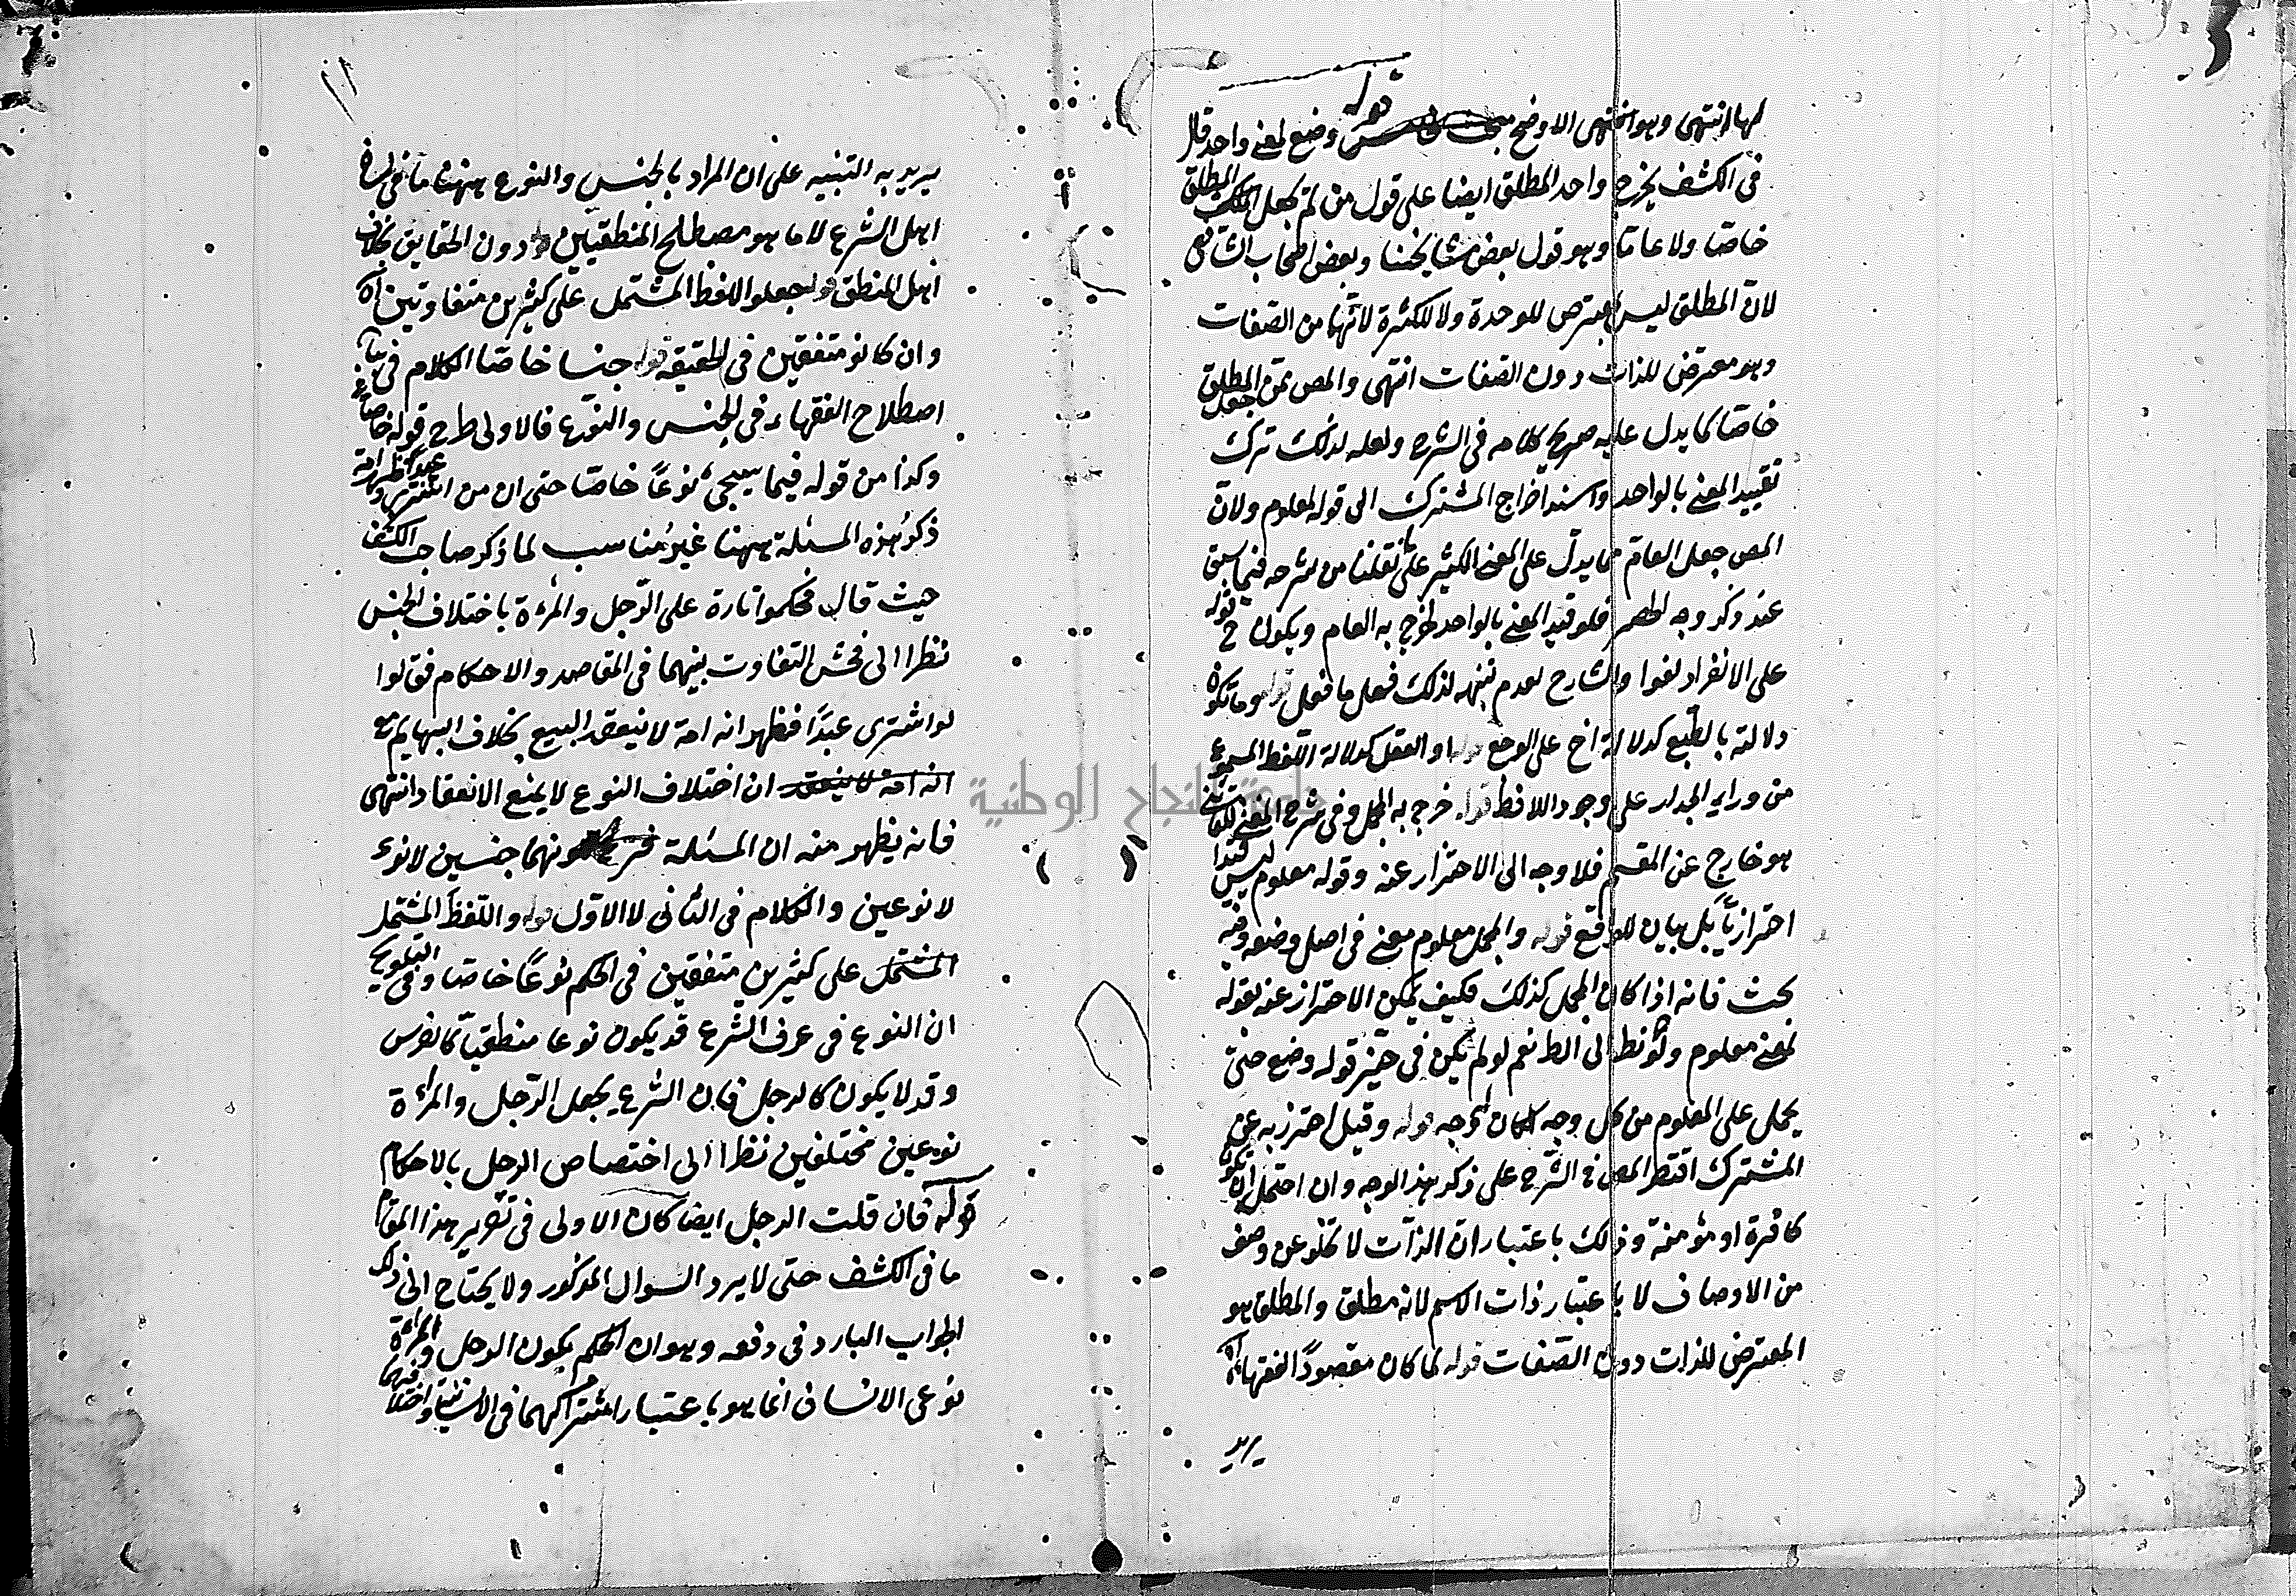 لها انتهى وهو انتهى الاوضح قوله وضع لمعنى واحد قال
فى الكشف يخرج واحد المطلق ايضا على قول من لم يجعل المطلق
خاصّا ولا عامّا وهو قول بعض مشايخنا وبعض اصحاب الشافعى
لانّ المطلق ليس بمعترض للوحدة ولا للكثرة لانّها من الصّفات
وهو معترض للذات دون الصّفات انتهى والمص ممن جعل المطلق
خاصّا كما يدل عليه صريح كلامه فى الشرح ولعله لذلك ترك
تقييد المعنى بالواحد واسند اخراج المشترك الى قوله لمعلوم ولانّ
المص جعل العامّ مما يدلّ على المعنى الكثير على ما نقلنا من شرحه فيما سبق
عند ذكر وجه الحصر فلو قيد المعنى بالواحد لخرج به العام ويكون ح قوله
على الانفراد لغوا والشارح لعدم تنبهه لذلك فعل ما فعل قوله وما تكون
دلالته بالطّبع كدلالة اخ على الوجع قوله او العقل كدلالة اللّفظ المسموع
من وراء الجدار على وجود اللافظ قوله خرج به المجمل وفى شرح المغنى
هو خارج عن المقسم فلا وجه الى الاحتراز عنه وقوله معلوم ليس قيدا
احترازيّا بل بيان للواقع قوله والمجمل معلوم معنى فى اصل وضعه وفيه
بحث فانه اذا كان المجمل كذلك فكيف يمكن الاحتراز عنه بقوله
لمعنى معلوم ولو نظر الى الظ نعم لو لم يكن فى حيّز قوله وضع حتّى
يحمل على المعلوم من كل وجه لكان له وجه قوله وقيل احترز به عن
المشترك اقتصر المص فى الشّرح على ذكر هذا الوجه وان احتمل ان تكون
كافرة او مؤمنة وذلك باعتبار انّ الذّات لا تخلو عن وصف
من الاوصاف لا باعتبار ذات الاسم لانه مطلق والمطلق هو
المعترض للذات دون الصّفات قوله لما كان مقصودًا لفقهاء اه
يريد
١١
يريد به التنبيه على ان المراد بالجنس والنوع ههنا ما فى لسان
اهل الشرع لا ما هو مصطلح المنطقيين دون الحقايق بخلاف
اهل المنطق قوله جعلوا اللفظ المشتمل على كثيرين متفاوتين اه
وان كانوا متفقين فى الحقيقة قوله جنسا خاصّا الكلام فى بيان
اصطلاح الفقهاء فى الجنس والنّوع فالاولى طرح قوله خاصّا
وكذا من قوله فيما سيجئ نوعًا خاصّا حتى ان من اشترى عبدًا فظهر امة
ذكر هذه المسئلة ههنا غير مُناسب لما ذكر صاحب الكشف
حيث قال فحكموا تارة على الرّجل والمرءة باختلاف الجنس
نظرا الى فحش التفاوت بينهما فى المقاصد والاحكام فقالوا
لو اشترى عبدًا فظهر انه امة لا ينعقد البيع بخلاف البهايم مع
انه امة لا ينعقد ان اختلاف النوع لا يمنع الانعقاد انتهى
فانه يظهر منه ان المسئلة كونهما جنسين لا نوع
لا نوعين والكلام فى الثانى لا الاوّل قوله واللّفظ المشتمل
المشتمل على كثيرين متفقين فى الحكم نوعًا خاصّا وفى التلويح
ان النوع فى عرف الشّرع قد يكون نوعا منطقيّا كالفرس
وقد لا يكون كالرجل فان الشرع يجعل الرّجل والمرءة
نوعين مختلفين نظرا الى اختصاص الرجل بالاحكام
قوله فان قلت الرجل ايضا كان الاولى فى تقرير هذا المقام
ما فى الكشف حتى لا يرد السوال المذكور ولا يحتاج الى ذلك
الجواب البارد فى دفعه وهو ان الحكم بكون الرجل والمرءة
نوعى الانسان انما هو باعتبار اشتراكهما فى الانسانية واختلافهما
جامعة النجاح الوطنية